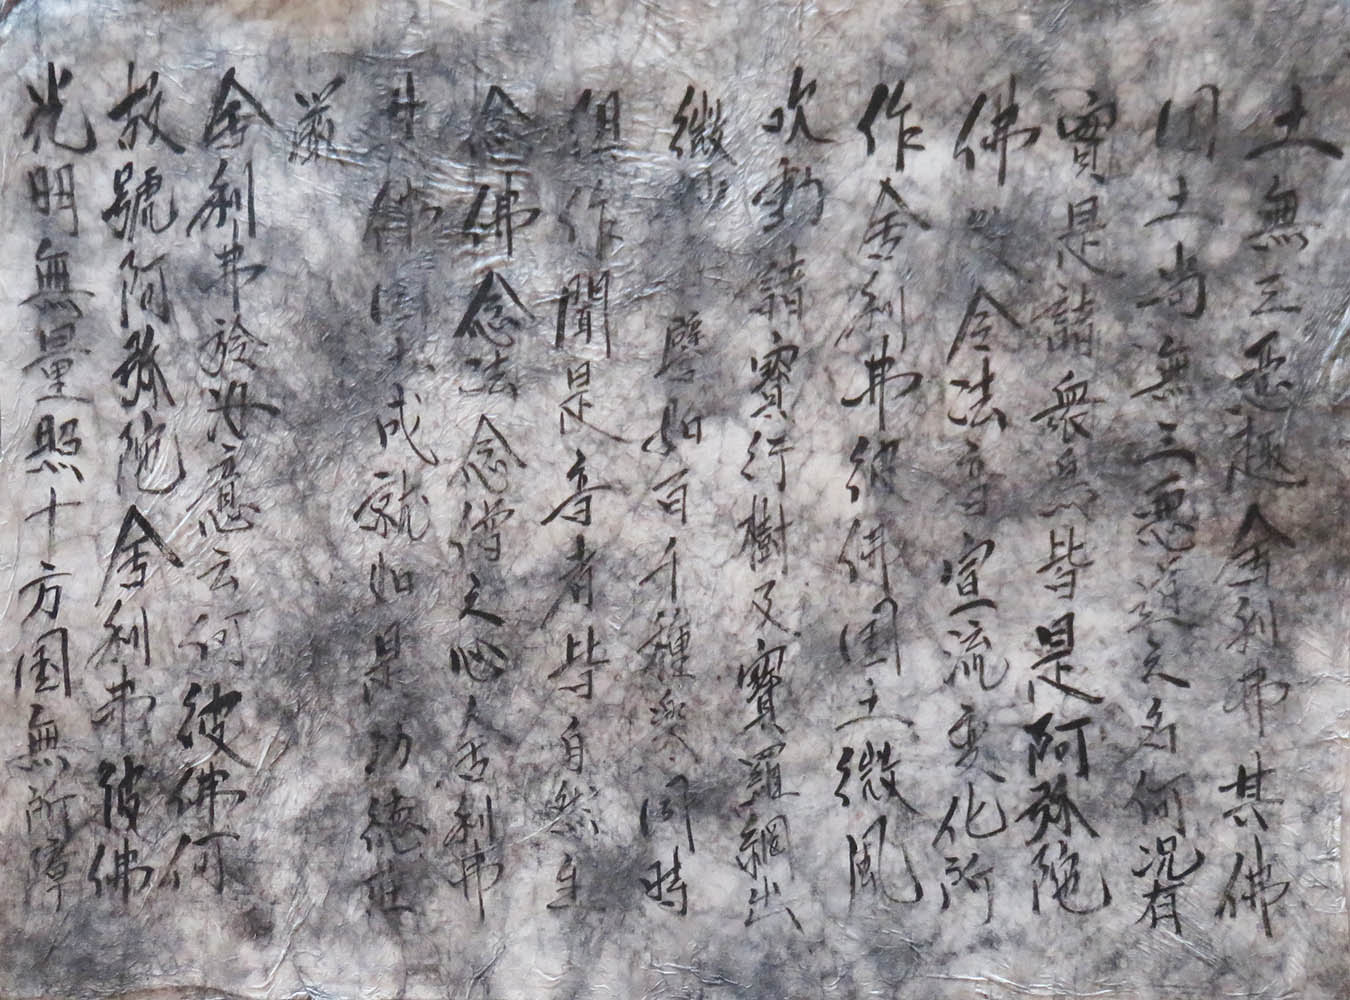 土無三惡趣舍利弗其佛
国土尚無三惡道之名何況有
實是諸衆鳥皆是阿弥陀
佛欲令法音宣流变化所
作舍利弗彼佛国土微風
吹動諸寶行樹及寶羅網出
微妙譬如百千種樂同時
俱作聞是音者皆自然生
念佛念法念僧之心舍利弗
其佛国土成就如是功德莊
嚴
舍利弗於汝意云何彼佛何
故號阿弥陀舍利弗彼佛
光明無量照十方国無所障